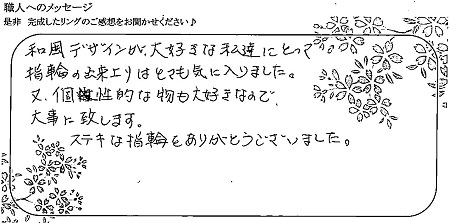 職人へのメッセージ
是非 完成したリングのご感想をお聞かせください♪
和風デザインが、大好きな私達にとって
指輪の出来上りはとても気に入りました。
又、個性的な物も大好きなので、
大事に致します。
ステキな指輪をありがとうございました。